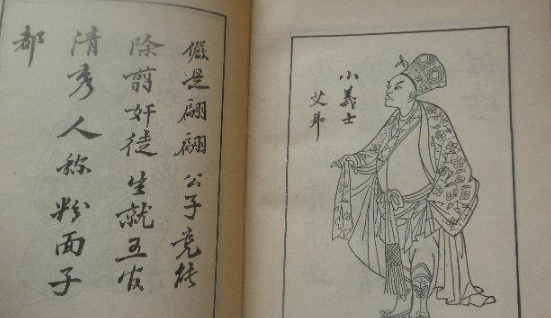 小義士
艾虎
儼是翩翩公子竟能
除剪奸徒生就五官
清秀人称粉面子
都